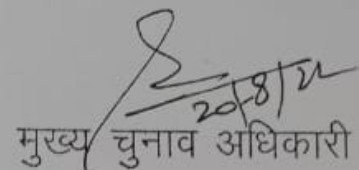 20/8/22
मुख्य चुनाव अधिकारी